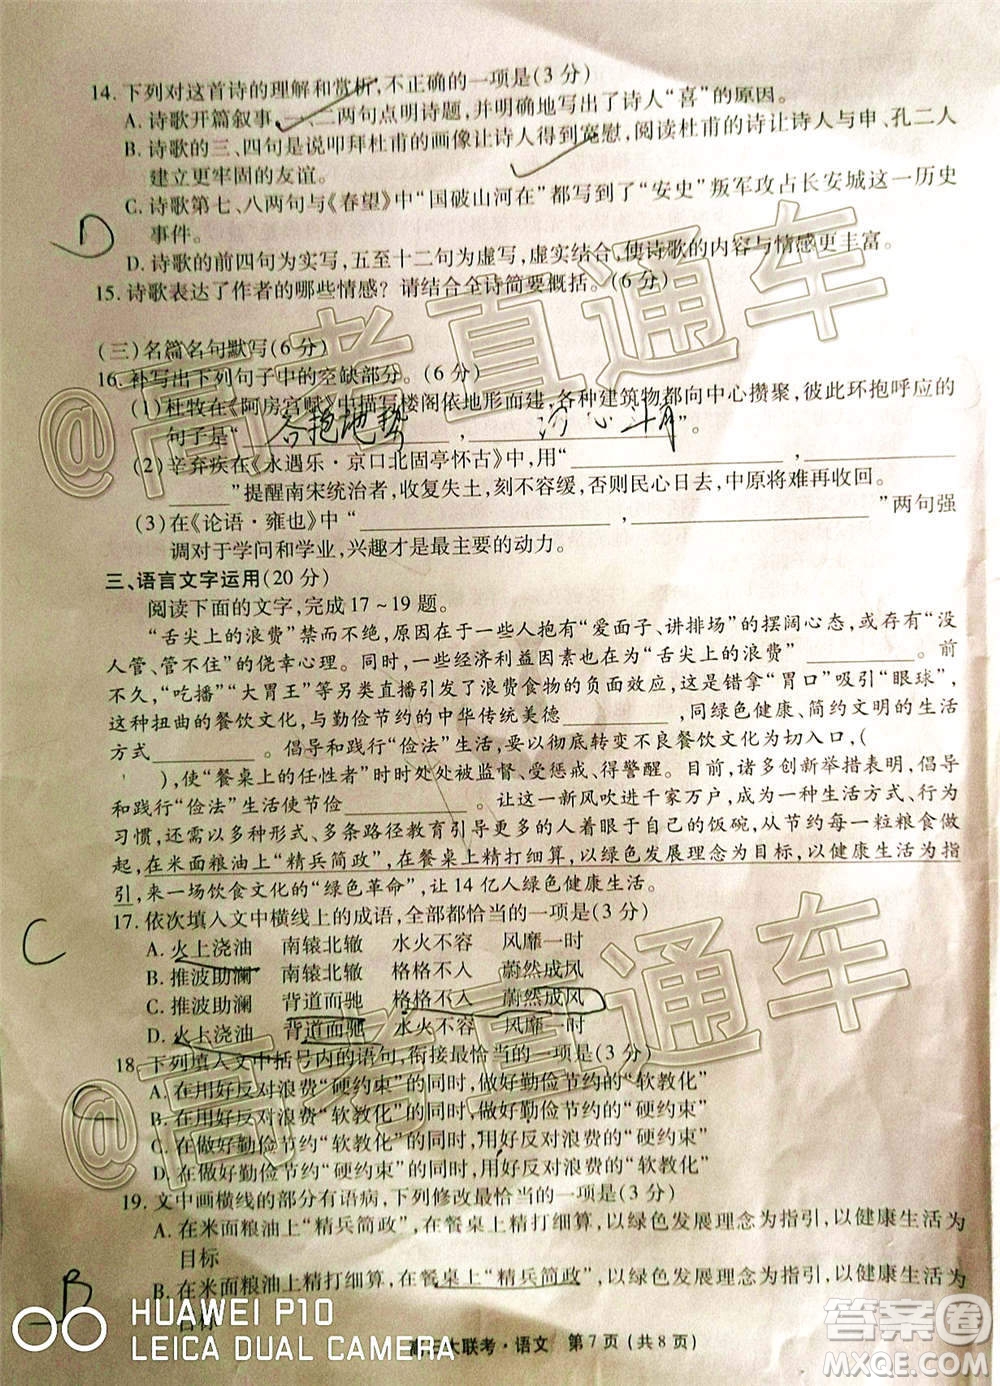 14. 下列对这首诗的理解和赏析，不正确的一项是(3 分)
A. 诗歌开篇叙事，一、二两句点明诗题，并明确地写出了诗人“喜”的原因。
B. 诗歌的三、四句是说叩拜杜甫的画像让诗人深得宽慰，阅读杜甫的诗让诗人与申、孔二人
建立更牢固的友谊。
C. 诗歌第七、八两句与《春望》中“国破山河在”都写到了“安史”叛军攻占长安城这一历史
事件。
D
D. 诗歌的前四句为实写，五至十二句为虚写，虚实结合，使诗歌的内容与情感更丰富。
15. 诗歌表达了作者的哪些情感？请结合全诗简要概括。(6 分)
(三)名篇名句默写(6 分)
16. 补写出下列句子中的空缺部分。(6 分)
(1)杜牧在《阿房宫赋》中描写楼阁依地形而建，各种建筑物都向中心攒聚，彼此环抱呼应的
句子是“各抱地势，沟心斗角”。
(2)辛弃疾在《永遇乐·京口北固亭怀古》中，用“____，
____”提醒南宋统治者，收复失土，刻不容缓，否则民心日去，中原将难再收回。
(3)在《论语·雍也》中“____，____”两句强
调对于学问和学业，兴趣才是最主要的动力。
三、语言文字运用(20 分)
阅读下面的文字，完成17～19 题。
“舌尖上的浪费”禁而不绝，例如在于一些人抱有“爱面子、讲排场”的摆阔心态，或存有“没
人管、管不住”的侥幸心理。同时，一些经济利益因素也在为“舌尖上的浪费”____。前
不久，“吃播”“大胃王”等另类直播引发了浪费食物的负面效应，这是错拿“胃口”吸引“眼球”，
这种扭曲的餐饮文化，与勤俭节约的中华传统美德____，同绿色健康、简约文明的生活
方式____。倡导和践行“俭法”生活，要以彻底转变不良餐饮文化为切入口，(
)，使“餐桌上的任性者”时时处处被监督、受惩戒、得警醒。目前，诸多创新举措表明，倡导
和践行“俭法”生活使节俭____。让这一新风吹进千家万户，成为一种生活方式、行为
习惯，还需以多种形式、多条路径教育引导人们珍惜自己的饭碗，从节约每一粒粮食做
起，在米面粮油上“精兵简政”，在餐桌上精打细算，以绿色发展理念为目标，以健康生活为指
引，来一场饮食文化的“绿色革命”，让 14 亿人绿色健康生活。
17. 依次填入文中横线上的成语，全部都恰当的一项是(3 分)
C
A. 火上浇油　南辕北辙　水火不容　风靡一时
B. 推波助澜　南辕北辙　格格不入　蔚然成风
C. 推波助澜　背道而驰　格格不入　蔚然成风
D. 火上浇油　背道而驰　水火不容　风靡一时
18. 下列填入文中括号内的语句，衔接最恰当的一项是(3 分)
A. 在用好反对浪费“硬约束”的同时，做好勤俭节约的“软教化”
B. 在用好反对浪费“软教化”的同时，做好勤俭节约的“硬约束”
C. 在做好勤俭节约“软教化”的同时，用好反对浪费的“硬约束”
D. 在做好勤俭节约“硬约束”的同时，用好反对浪费的“软教化”
19. 文中画横线的部分有语病，下列修改最恰当的一项是(3 分)
A. 在米面粮油上“精兵简政”，在餐桌上精打细算，以绿色发展理念为指引，以健康生活为
目标
B
B. 在米面粮油上精打细算，在餐桌上“精兵简政”，以绿色发展理念为指引，以健康生活为
目标
大联考·语文　第 7 页(共 8 页)
HUAWEI P10
LEICA DUAL CAMERA
@高考直通车
@高考直通车
答案圈
MXQE.COM